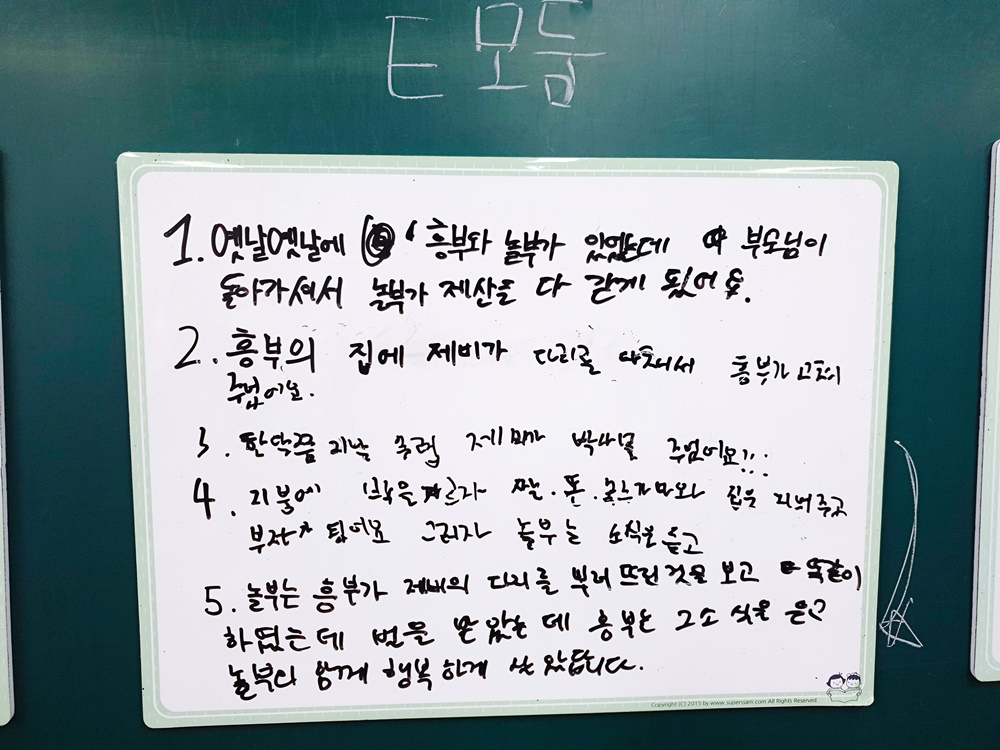 E 모둠
1. 옛날옛날에 흥부와 놀부가 있었는데 부모님이
돌아가셔서 놀부가 제산을 다 갇게 됬어요.
2. 흥부의 집에 제비가 다리를 다쳐서 흥부가 고쳐
주었어요.
3. 한달쯤 지날 제비가 박씨를 주었어요!!
4. 지붕에 박을 자르자 쌀. 돈. 나와 집을 지어주고
부자가 됬어요 그러자 놀부는 소식을 듣고
5. 놀부는 흥부가 제비의 다리를 부러뜨린것을 보고 똑같이
하였는데 벌을 받았는데 흥부는 그소식을 듣고
놀부와 함께 행복하게 살았답니다.
Copyright (C) 2015 by www.supersam.com All Rights Reserved.